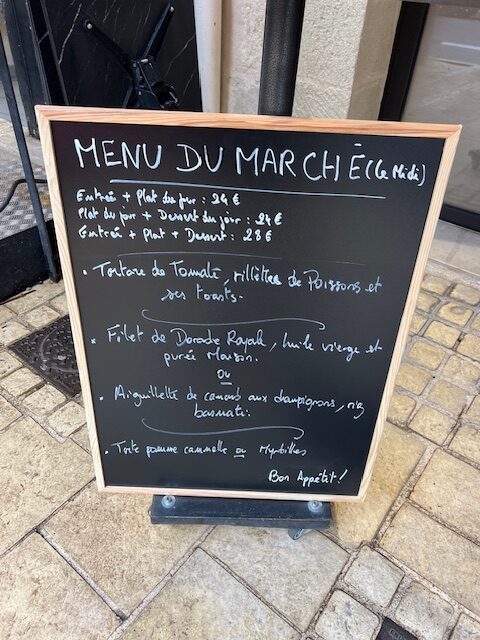 MENU DU MARCHÉ (Le Midi)
Entrée + Plat du jour : 24 €
Plat du jour + Dessert du jour : 24 €
Entrée + Plat + Dessert : 28 €
• Tartare de Tomate, rillettes de Poissons et
ses toasts.
• Filet de Dorade Royale, huile vierge et
purée Maison.
ou
• Aiguillette de canard aux champignons, riz
basmati.
• Tarte pomme cannelle ou Myrtilles
Bon Appétit !